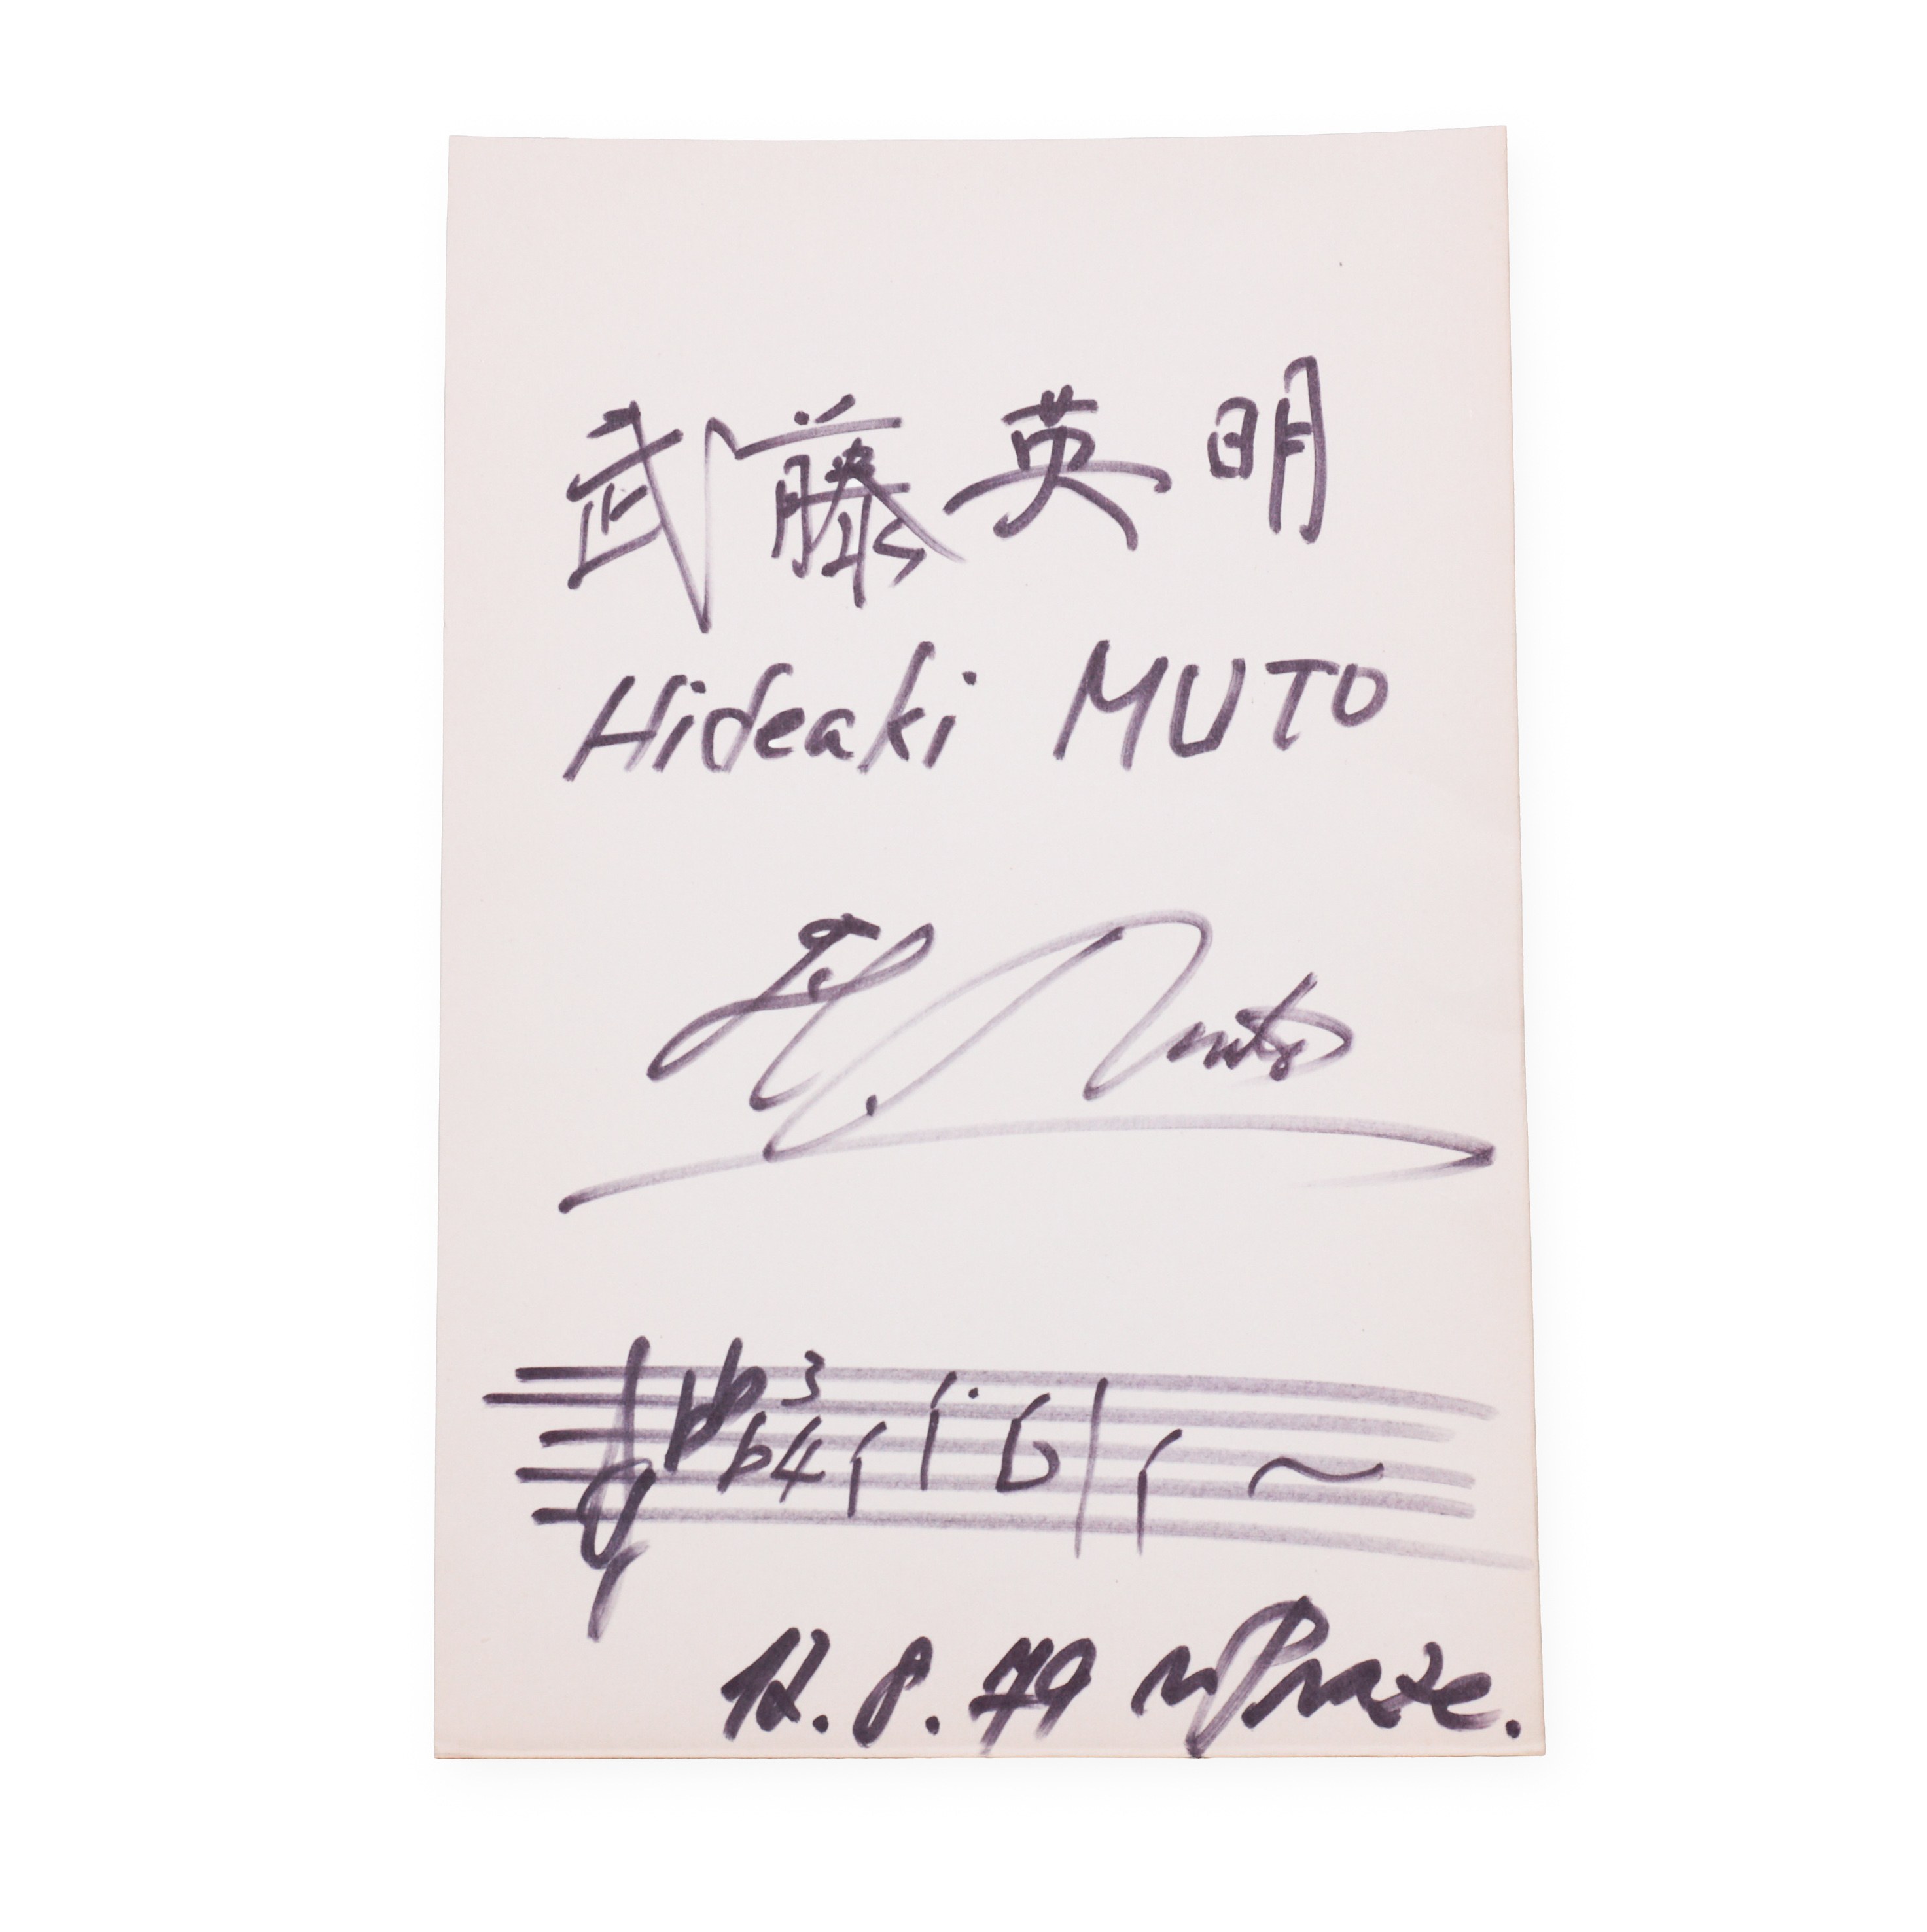 武藤英明
Hideaki MUTO
H. Muto
3
4
12.8.79 v Praze.